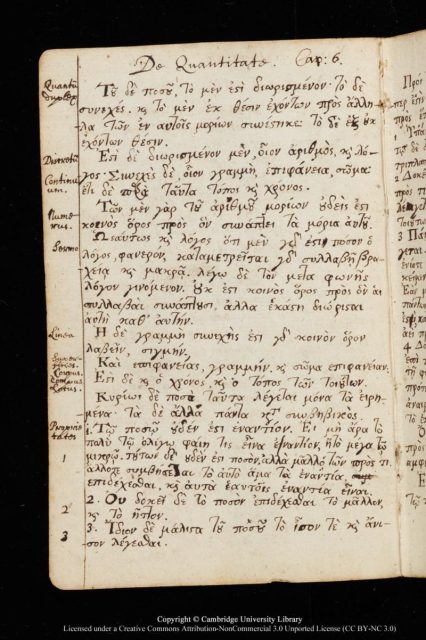 De Quantitate. Cap: 6.
Quantū duplex
Τȣ͂ δὲ ποσȣ͂, τὸ μὲν ἐϛὶ διωρισμένον· τὸ δὲ
συνεχές. κ̀ τὸ μὲν ἐκ θέσιν ἐχόντων πρὸς ἄλλη-
λα τῶν ἐν αὐτοῖς μορίων συνέϛηκε· τὸ δὲ ἐξ ȣ̓κ
ἐχόντων θέσιν.
Discreta
Ἐϛὶ δὲ διωρισμένον μὲν, οἷον ἀριθμὸς, κ̀ λό-
Continuum.
γος· Συνεχὲς δὲ, οἷον γραμμὴ, ἐπιφάνεια, σῶμα·
ἔτι δὲ ταῦτα τόπος κ̀ χρόνος.
Numerus.
Τῶν μὲν γὰρ τȣ͂ ἀριθμȣ͂ μορίων ȣ̓δείς ἐϛι
κοινὸς ὅρος πρὸς ὃν συνάπτει τὰ μόρια αὐτȣ͂.
Sermo
Ὡσαύτως κ̀ λόγος ὅτι μὲν γδ̀ ἐϛι ποσὸν ὁ
λόγος, φανερὸν, καταμετρεῖται γδ̀ συλλαβῇ βρα-
χείᾳ κ̀ μακρᾷ. λέγω δὲ τὸν μετὰ φωνῆς
λόγον γινόμενον. ȣ̓κ ἔϛι κοινὸς ὅρος πρὸς ὃν αἱ
συλλαβαὶ συνάπτȣσι, ἀλλὰ ἑκάϛη διώρισται
αὐτὴ καθ' αὑτήν.
Linea
Ἡ δὲ γραμμὴ συνεχής ἐϛι γδ̀ κοινὸν ὅρον
λαβεῖν, στιγμήν.
Corpus.
Καὶ ἐπιφανείας, γραμμήν, κ̀ σῶμα ἐπιφάνειαν.
Tempus
Locus.
Ἐϛι δὲ κ̀ ὁ χρόνος, κ̀ ὁ τόπος τῶν τοιȣ́των.
Κυρίως δὲ ποσὰ ταῦτα λέγεται μόνα τὰ εἰρη-
μένα· τὰ δὲ ἄλλα πάντα κτ̀ συμβεβηκός.
Proprietates
1. Τῷ ποσῷ ȣ̓δέν ἐϛι ἐναντίον. Εἰ μὴ ἄρα τὸ
πολὺ τῷ ὀλίγῳ φαίη τὶς εἶναι ἐναντίον, ἢ τὸ μέγα τῷ
1
μικρῷ. τȣ́των δὲ ȣ̓δέν ἐϛι ποσὸν, ἀλλὰ μᾶλλον τῶν πρός τι.
ἄλλοτε συμβήσεται τὸ αὐτὸ ἅμα τὰ ἐναντία
ἐπιδέχεσθαι, κ̀ αὐτὰ ἑαυτοῖς ἐναντία εἶναι.
2
2. Οὐ δοκεῖ δὲ τὸ ποσὸν ἐπιδέχεσθαι τὸ μᾶλλον,
κ̀ τὸ ἧττον.
3
3. Ἴδιον δὲ μάλιϛα τȣ͂ ποσȣ͂ τὸ ἴσον τὲ κ̀ ἄνι-
σον λέγεσθαι.
Copyright © Cambridge University Library
Licensed under a Creative Commons Attribution-NonCommercial 3.0 Unported License (CC BY-NC 3.0)